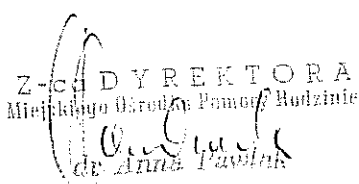 Z-ca DYREKTORA
Miejskiego Ośrodka Pomocy Rodzinie
dr Anna Pawlak